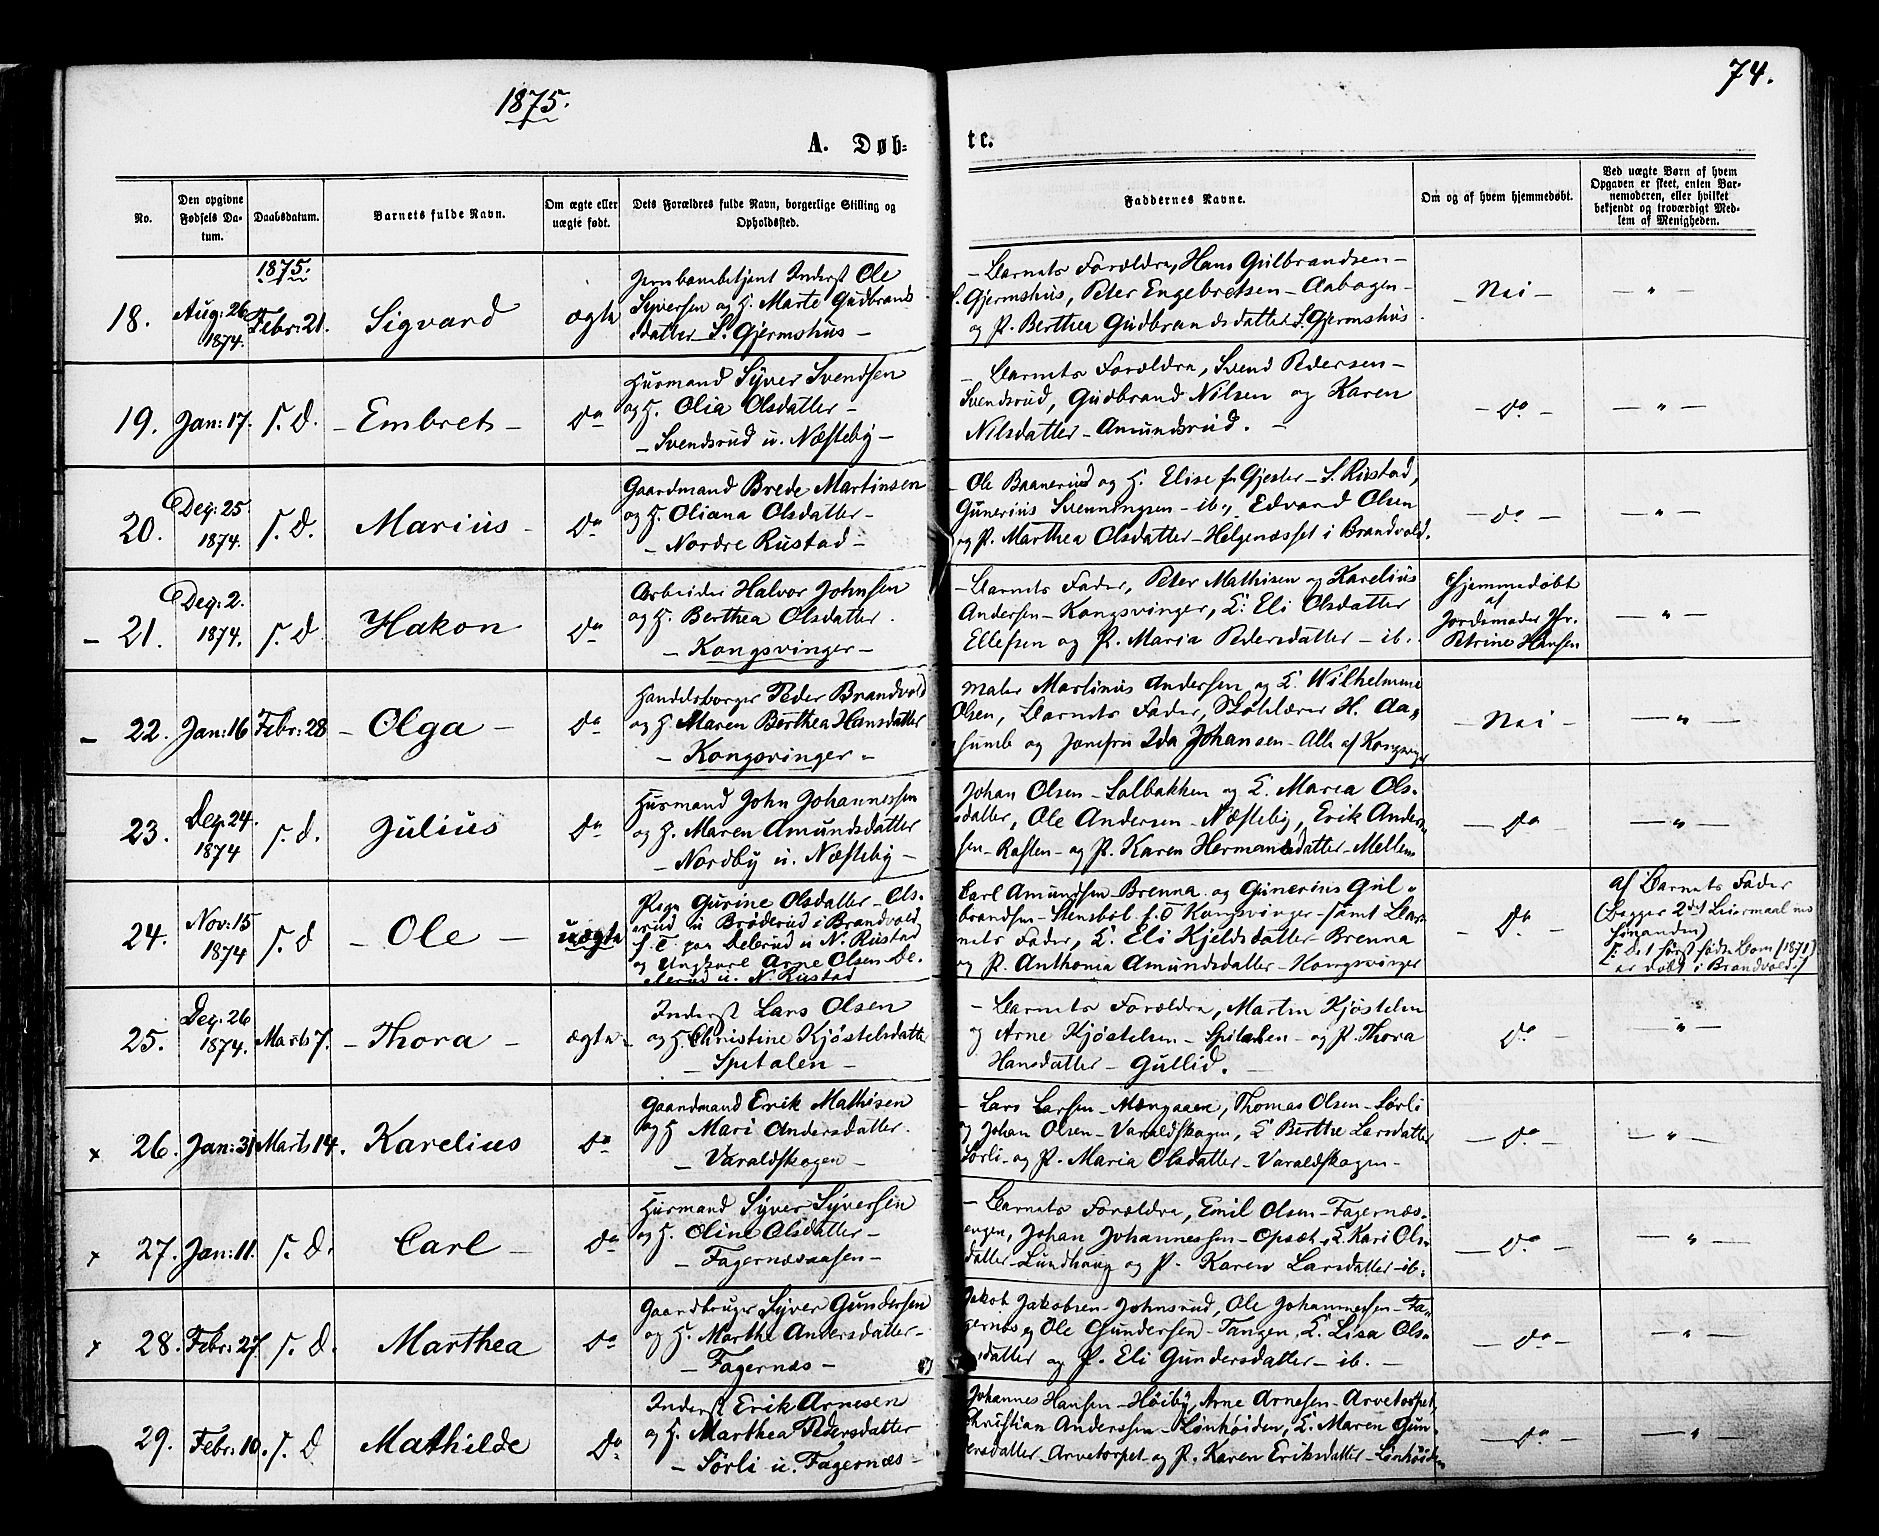 1875.
74.
A. Døb-
te.
No.
Den opgivne Fødsels Da-tum.
Daabsdatum.
Barnets fulde Navn.
Om ægte eller uægte født.
Dets Forældres fulde Navn, borgerlige Stilling og Opholdssted.
Faddernes Navne.
Om og af hvem hjemmedøbt.
Ved uægte Børn af hvem Opgaven er skeet, enten Bar-nemoderen, eller hvilket bekjendt og troværdigt Med-lem af Menigheden.
1875.
18.
Aug: 26
1874.
Febr: 21.
Sigvard
ægte
Jernbanebetjent Inderst Ole
Syversen og H. Marte Gudbrands
datter S. Gjermshus -
- Barnets Forældre, Hans Gulbrandsen -
S. Gjermshus, Peter Engebretsen - Aabogen -
og P. Berthea Gudbrandsdatter S. Gjermshus
- Nei -
- " -
19.
Jan: 17.
s. d.
- Embret -
do
Husmand Syver Svendsen
og H. Olia Olsdatter -
- Svendsrud u. Næsteby -
- Barnets Forældre, Svend Pedersen -
Svendsrud, Gudbrand Nilsen og Karen
Nilsdatter - Amundsrud. -
- do -
- " -
20.
Dec: 25
1874.
s. d.
Marius -
do
Gaardmand Brede Martinsen
og H. Oliana Olsdatter -
- Nordre Rustad -
- Ole Baanerud og H. Elise f. Gjester - S. Rustad,
Gunerius Svenningsen - ib., Edvard Olsen
og P. Marthea Olsdatter - Helgenæsset i Brandvold.
- do -
- " -
- 21.
Dec: 2.
1874.
s. d.
Hakon
do
Arbeider Halvor Johnsen
og H. Berthea Olsdatter.
- Kongsvinger -
- Barnets Fader, Peter Mathisen og Karelius
Andersen - Kongsvinger, K: Eli Olsdatter
Ellefsen og P. Maria Pedersdatter - ib.
Hjemmedøbt
af
Jordmoder Fr.
Petrine Hansen
- " -
- 22.
Jan: 16
Febr: 28
- Olga -
do
Handelsborger Peder Brandvold
og H. Maren Berthea Hansdatter
- Kongsvinger -
Maler Martinus Andersen og K. Wilhelmine
Olsen, Barnets Fader, Skolelærer H. Aa-
sumb og Jomfru Ida Johansen - Alle af Kongsvinger
- Nei -
- " -
23.
Dec. 24.
1874
s. d.
Julius
do
Husmand John Johannessen
og H. Maren Amundsdatter
- Nordby u. Næsteby -
Johan Olsen - Solbakken og K. Maria Ols-
datter, Ole Andersen - Næsteby, Erik Ander-
sen - Rasten - og P. Karen Hermansdatter - Mellem
- do -
- " -
24.
Nov: 15
1874
s. d
- Ole -
uægte
Pige Gurine Olsdatter - Ols-
erud u Brøderud i Brandvold
f. T. paa Delerud u N. Rustad
og Ungkarl Arne Olsen De-
lerud u. N. Rustad
Carl Amundsen Brenna og Gunerius Gul-
brandsen - Stensbøl f. T. Kongsvinger - samt Bar-
nets Fader, K. Eli Kjeldsdatter - Brenna
og P. Anthonia Amundsdatter - Kongsvinger
- do -
af Barnets Fader
(Begges 2det Leiermaal med
hinanden)
/: Det først fødte Barn (1871)
er døbt i Brandvold:/
25.
Dec: 26
1874.
Marts 7.
- Thora -
ægte
Inderst Lars Olsen
og H. Christine Kjøstelsdatter
- Spitalen -
- Barnets Forældre, Martin Kjøstelsen
og Arne Kjøstelsen - Spitalen - og P. Thora
Hansdatter - Gullid. -
do
- " -
x 26.
Jan: 31
Marts 14.
Karelius
do
Gaardmand Erik Mathisen
og H Mari Andersdatter.
- Varaldskogen -
- Lars Larsen - Mængaaen, Thomas Olsen - Sørli
og Johan Olsen - Varaldskogen, K. Berthe Larsdatter
Sørli - og P. Maria Olsdatter - Varaldskogen -
- do -
- " -
x 27.
Jan: 11.
s. d.
Carl -
do
Husmand Syver Syversen
og H. Oline Olsdatter -
- Fagernæsaasen -
- Barnets Forældre, Emil Olsen - Fagernæs-
engen, Johan Johannessen - Opsæt, K. Kari Ols-
datter - Lundhaug og P. Karen Larsdatter - ib.
- do -
- " -
x 28.
Febr: 27.
s. d.
Marthea
do
Gaardbruger Syver Gundersen
og H. Marthe Andersdatter -
- Fagernæs -
Jakob Jakobsen - Johnsrud, Ole Johannessen - Fa-
gernæs og Ole Gundersen - Tangen, K. Lisa Ols-
datter og P. Eli Gundersdatter - ib. -
- do -
- " -
29.
Febr: 10.
s. d
Mathilde
do
Inderst Erik Arnesen
og H. Marthea Pedersdatter
- Sørli u. Fagernæs -
Johannes Hansen - Høiby, Arne Arnesen - Arvetorpet,
Christian Anderssen - Lønhøiden, K. Maren Gun-
dersdatter - Arvetorpet - og P. Karen Eriksdatter - Lønhøiden
- do -
- " -